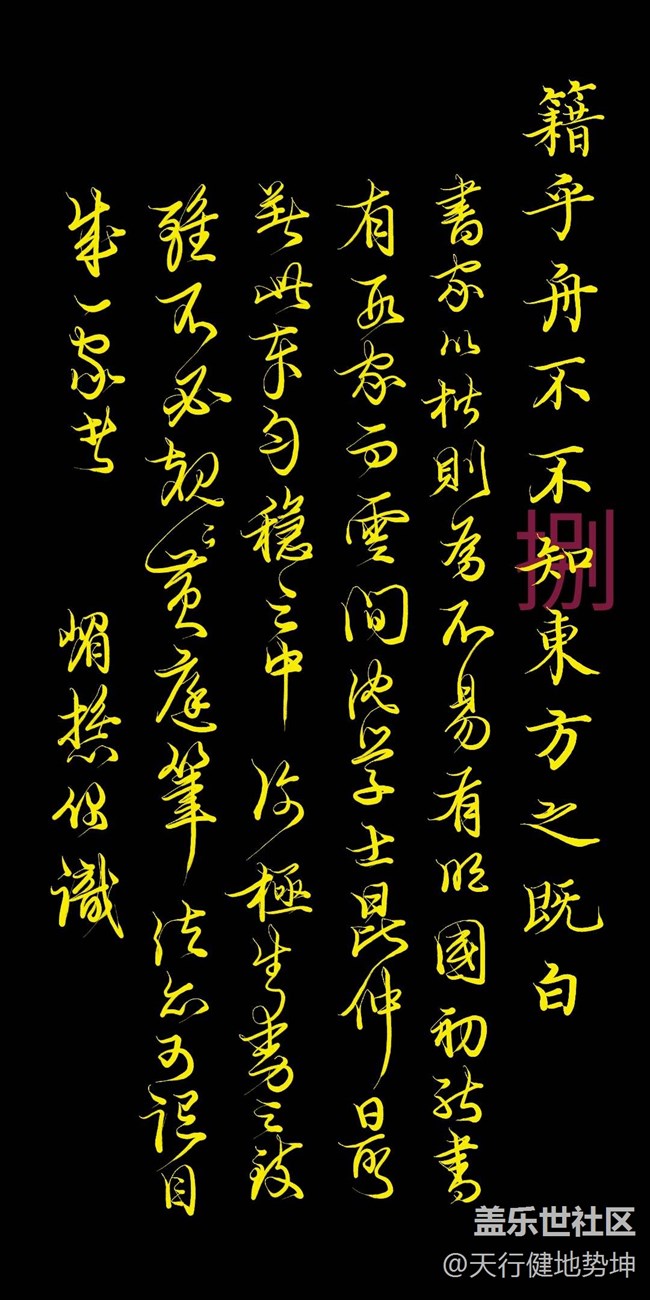 籍乎舟不不知東方之既白
書家以楷則為不易有明國初能書
有百家而雲間沈學士昆仲最
著此東匀穩之中 極生動之致
雖不必規規黄庭筆法亦可謂自
成一家者
嵋 偶識
捌
盖乐世社区
@天行健地势坤